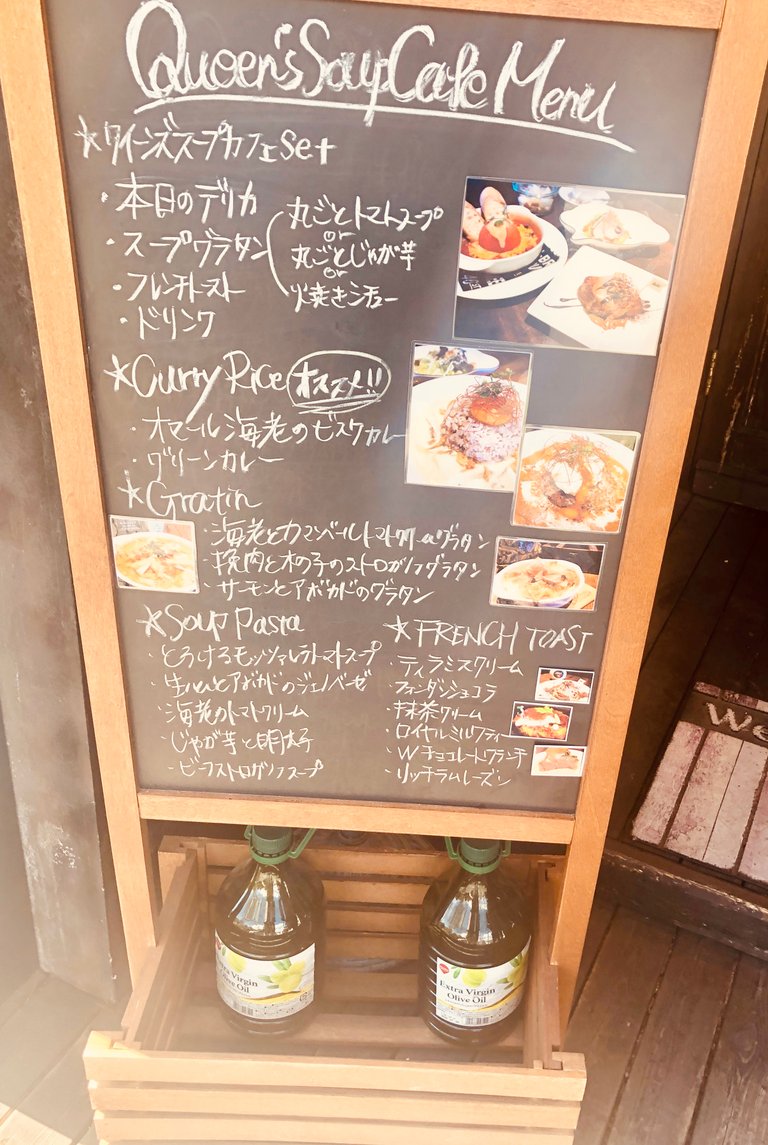 Queen's Soup Cafe Menu
★クイーンズスープカフェ set
・本日のデリカ
・スープグラタン
・フレンチトースト
・ドリンク
丸ごとトマトスープ
or
丸ごとじゃが芋
or
火焼きシチュー
★Curry Rice オススメ!!
・オマール海老のビスクカレー
・グリーンカレー
★Gratin
・海老とカマンベールトマトクリームグラタン
・挽肉と木の子のストロガノフグラタン
・サーモンとアボカドのグラタン
★Soup Pasta
・とろけるモッツァレラトマトスープ
・生ハムとアボカドのジェノベーゼ
・海老のトマトクリーム
・じゃが芋と明太子
・ビーフストロガノフスープ
★FRENCH TOAST
・ティラミスクリーム
・フォンダンショコラ
・抹茶クリーム
・ロイヤルミルクティー
・Wチョコレートクランチ
・リッチラムレーズン
We
Extra Virgin
Olive Oil
Extra Virgin
Olive Oil